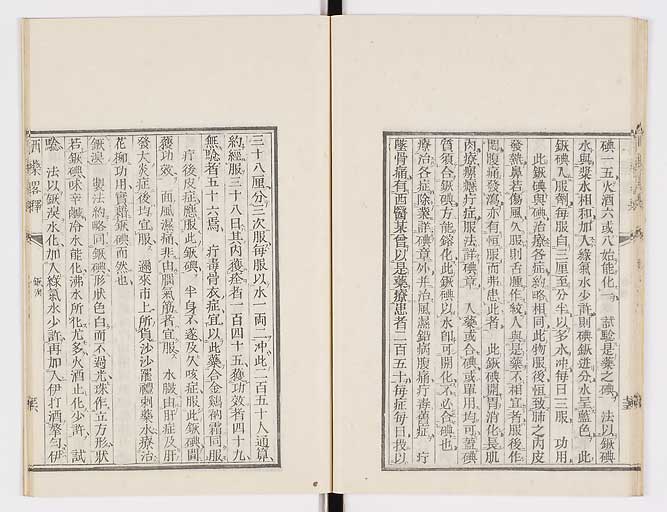 碘一五火酒六或八始能化 試驗是藥之碘 法以鉀碘
水與漿水相和加入綠氣水少許則碘鉀迸分水呈藍色 此
鉀碘入服劑每服自三厘至分半以多水冲每日三服 功用
此鉀碘與碘治療各症約略相同此物服後恒致肺之內皮
發熱鼻若傷風久服則舌腫作皴人與是藥不相宜者服後作
悶腹痛發瀉亦有恒服而弗患此者 此鉀碘開胃消化長肌
肉療癆癧疔症服法詳碘章 人藥或合碘或單用均可蓋碘
質須合鉀碘方能鎔化此鉀碘以水卽可開化不必合碘也
療治各症除業詳碘章外并治風濕鉛病腹痛疔毒舊症 疔
墜骨痛有西醫某曾以是藥療患者二百五十每症每日我以
三十八厘分三次服每服以水一兩二冲此二百五十人通算
約經服三十八日其內獲痊者一百四十五獲功效者四十九
無騐者五十六焉 疔毒骨衣症宜以此藥合金鷄納霜同服
疔後皮症應服此鉀碘 半身不遂及久咳症服此鉀碘閒
獲功效 面風濕痛非由腦氣筋者宜服 水臌由肝症及肝
發大炎症後均宜服 邇來市上所貨沙沙羅禮刺藥水療治
花柳功用實藉鉀碘而然也
鉀溴 製法約略同鉀碘形狀色白而不過光珠作立方形狀
若鉀碘味辛鹹冷水能化沸水所化尤多火酒止化少許 試
騐 法以鉀溴水化加入綠氣水少許再加入伊打酒攀勻伊
西藥略釋
鉀溴